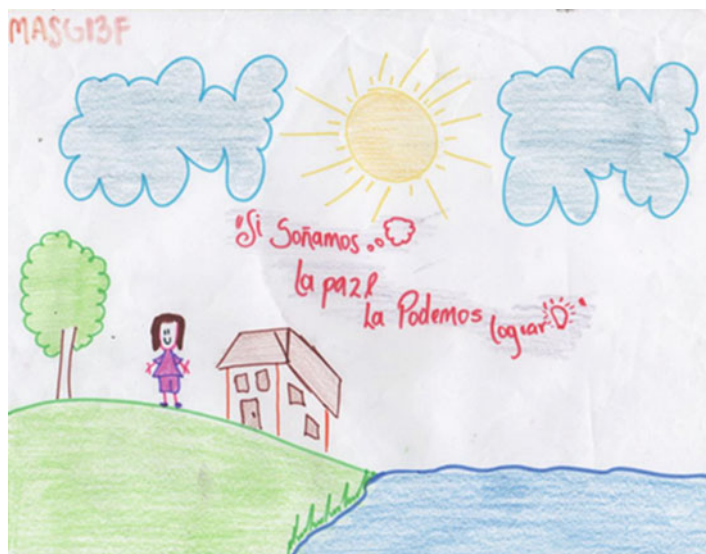 MASG13F
"Si Soñamos..
la paz
la Podemos lograr"